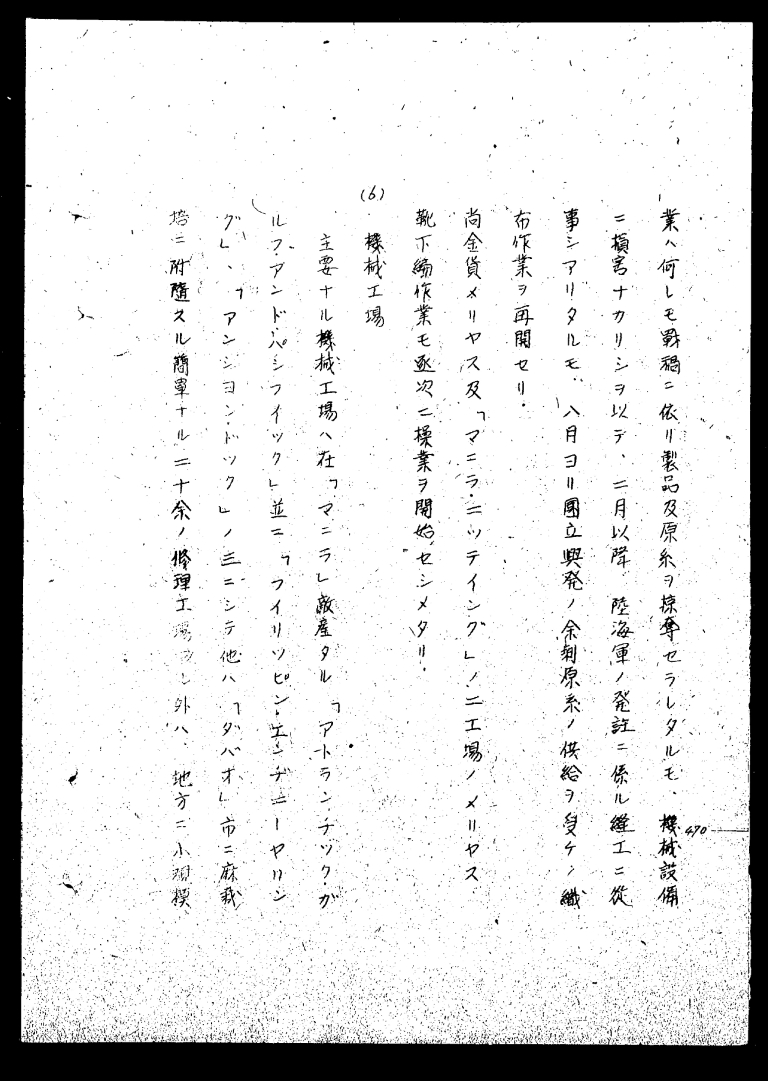 業ハ何レモ戰禍ニ依リ製品及原糸ヲ掠奪セラレタルモ、機械設備
ニ損害ナカリシヲ以テ、二月以降陸海軍ノ発註ニ係ル縫工ニ從
事シアリタルモ、八月ヨリ國立興発ノ余剰原糸ノ供給ヲ受ケ、織
布作業ヲ再開セリ。
尚金貨メリヤス及「マニラ・ニッテイング」ノ二工場ノメリヤス
靴下編作業モ逐次ニ操業ヲ開始セシメタリ。
(6) 機械工場
主要ナル機械工場ハ在「マニラ」敵産タル「アトランチック・ガ
ルフ・アンド・パシフイック」並ニ「フイリッピン・エンヂニーヤリン
グ」、「アンション・ドック」ノ三ニシテ他ハ「ダバオ」市ニ麻栽
培ニ附隨スル簡單ナル二十余ノ修理工場 外ハ、地方ニ小規模
470